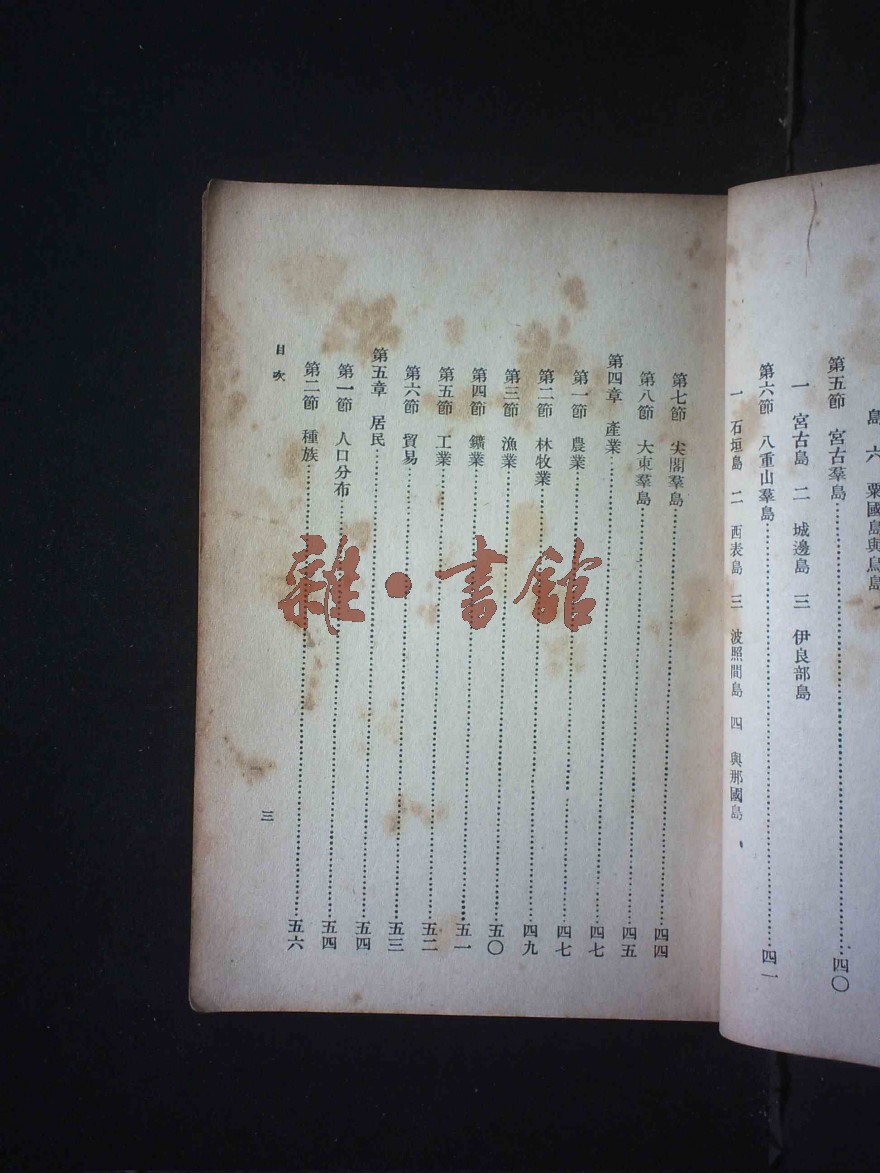 島 六 粟國島與鳥島
第五節 宮古羣島……四〇
一 宮古島 二 城邊島 三 伊良部島
第六節 八重山羣島……四一
一 石垣島 二 西表島 三 波照間島 四 與那國島
第七節 尖閣羣島……四四
第八節 大東羣島……四五
第四章 產業……四七
第一節 農業……四七
第二節 林牧業……四九
第三節 漁業……五〇
第四節 鑛業……五一
第五節 工業……五二
第六節 貿易……五三
第五章 居民……五四
第一節 人口分布……五四
第二節 種族……五六
目次
三
雜·書館